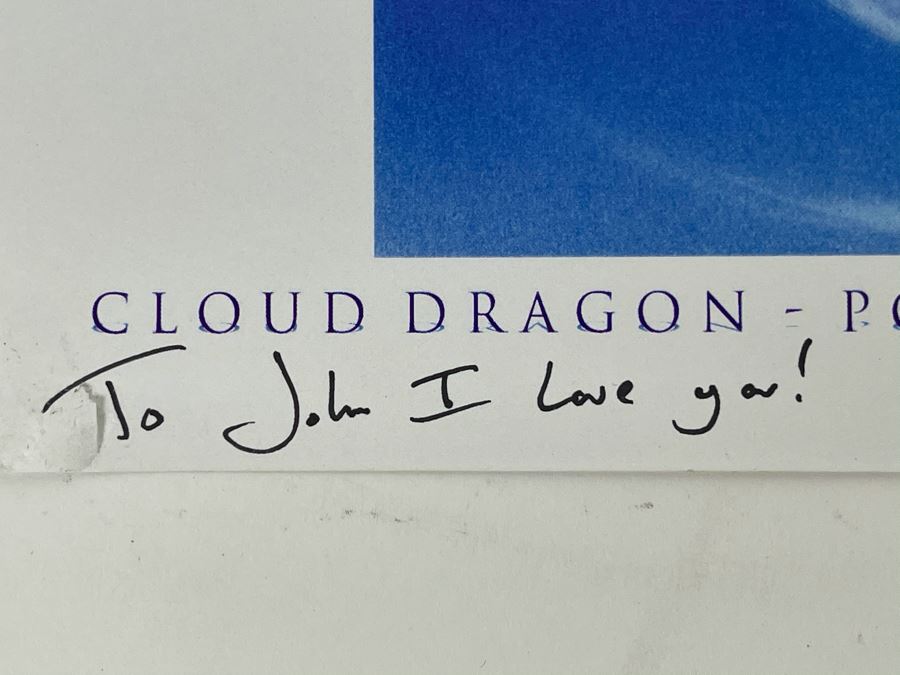 CLOUD DRAGON - PO
To John I Love you!